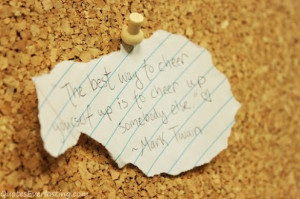 The best way to cheer
yourself up is to cheer up
somebody else."
~Mark Twain
QuotesEverlasting.com